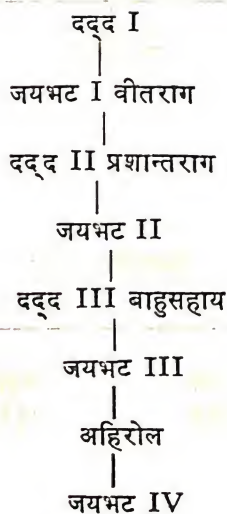 दद्द I
जयभट I वीतराग
दद्द II प्रशान्तराग
जयभट II
दद्द III वाहुसहाय
जयभट III
अहिरोल
जयभट IV